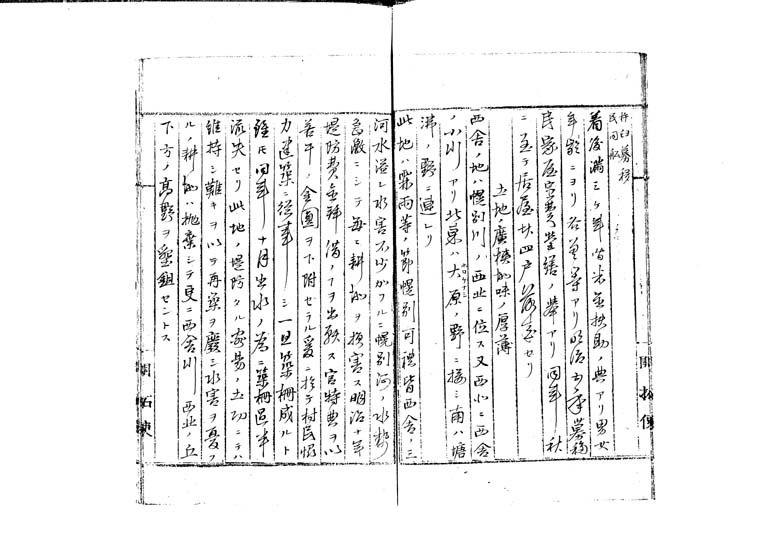 杵臼募移
民同断
着後満三ケ年間米金扶助ノ典アリ男女
年齢ニヨリ各差等アリ明治五年募移
民家屋営繕ノ挙アリ同年秋
ニ至テ居屋廿四戸落成セリ
土地ノ廣狭地味ノ厚薄
西舎ノ地ハ幌別川ノ西北ニ位ス又西北ニ西舎
ノ小川アリ北東ハ大原ノ野ニ接シ南ハ塘
沸ノ野ニ連レリ
此地ハ霖雨等ノ節幌別河禮皆西舎ノ三
河水溢レ水害不少加フルニ幌別河ノ水勢
急激ニシテ毎ニ耕地ヲ損害ス明治十年
堤防費金拝借ノヿヲ出願ス官特典ヲ以
若干ノ金圓ヲ下附セラル爰ニ於テ村民悩
力建築ニ従事シ一旦築柵成ルト
雖𪜈同年十月出水ノ為ニ築柵過半
流失セリ此地ノ堤防タル容易ノ土功ニテハ
維持シ難キヲ以テ再築ヲ廢シ水害ヲ憂フ
ルノ耕地ハ抛棄シテ更ニ西舎川西北ノ丘
下方ノ高野ヲ墾鋤セントス
開拓使
開拓使